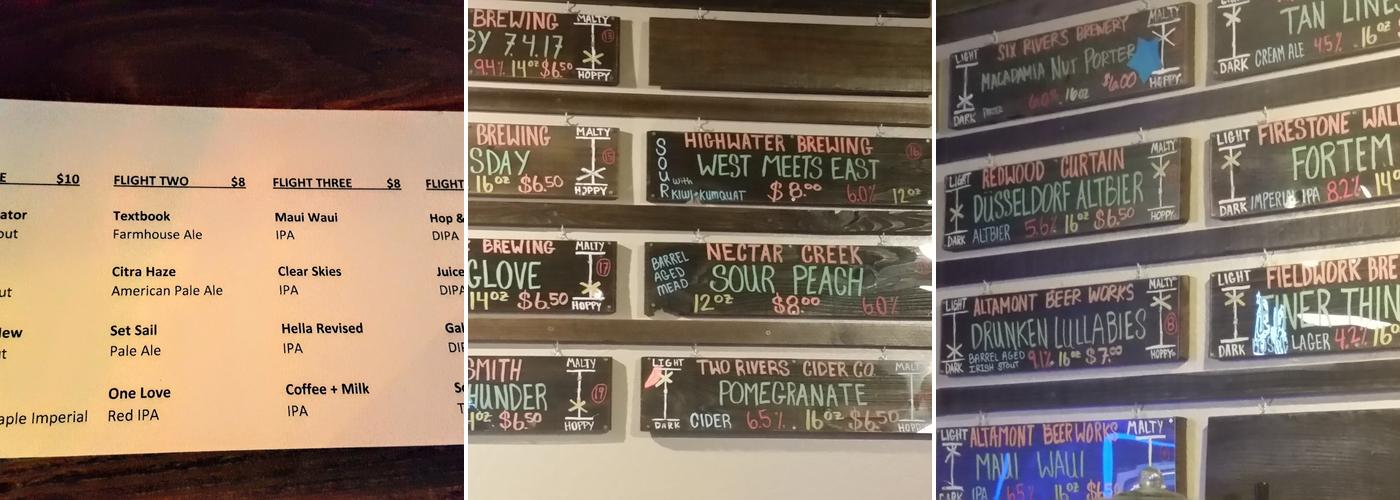 $10
FLIGHT TWO $8
FLIGHT THREE $8
FLIGHT
Textbook
Farmhouse Ale
Maui Waui
IPA
Hop &
DIPA
Citra Haze
American Pale Ale
Clear Skies
IPA
Juice
DIPA
Set Sail
Pale Ale
Hella Revised
IPA
One Love
Red IPA
Coffee + Milk
IPA
aple Imperial
BREWING MALTY
BY 7.4.17 13
9.4% 14oz $6.50 HOPPY
BREWING MALTY
SDAY 15
16oz $6.50 HOPPY
HIGHWATER BREWING 16
SOUR WEST MEETS EAST
with KIWI-KUMQUAT $8.00 6.0% 12oz
BREWING MALTY
GLOVE 17
14oz $6.50 HOPPY
BARREL AGED MEAD
NECTAR CREEK
SOUR PEACH
12oz $8.00 6.0%
SMITH MALTY
HUNDER 19
oz $6.50 HOPPY
LIGHT TWO RIVERS CIDER CO.
POMEGRANATE
DARK CIDER 6.5% 16oz $6.50
LIGHT SIX RIVERS BREWERY MALTY
MACADAMIA NUT PORTER
DARK PORTER 6.0% 16oz $6.00 HOPPY
TAN LINE
DARK CREAM ALE 4.5% 16oz
LIGHT REDWOOD CURTAIN MALTY
DÜSSELDORF ALTBIER
DARK ALTBIER 5.6% 16oz $6.50 HOPPY
LIGHT FIRESTONE WAL
FORTEM
DARK IMPERIAL IPA 8.2% 14oz
LIGHT ALTAMONT BEER WORKS MALTY
DRUNKEN LULLABIES 8
DARK BARREL AGED IRISH STOUT 9.1% 16oz $7.00 HOPPY
LIGHT FIELDWORK BRE
INER THIN
DARK LAGER 4.2% 16
LIGHT ALTAMONT BEER WORKS MALTY
MAUI WAUI
IPA 6.5% 16oz